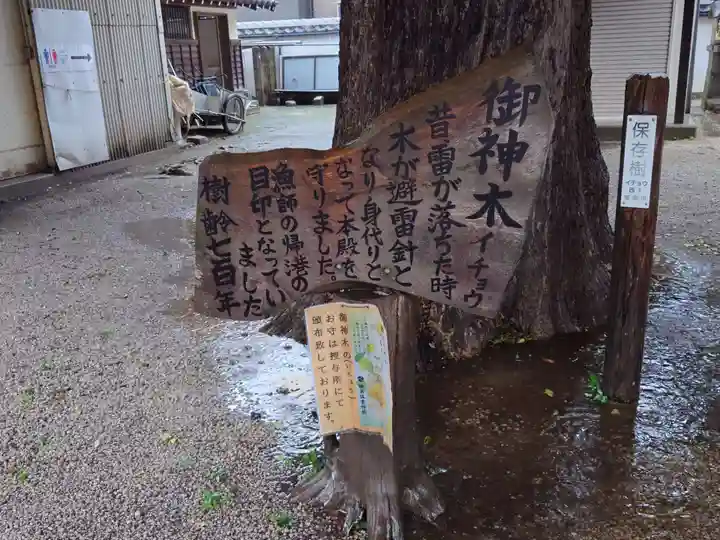 御神木イチョウ
昔雷が落ちた時
木が避雷針と
なり身代りと
なって本殿を
守りました。
漁師の帰港の
目印となってい
ました
樹齢七百年
保存樹
イチョウ
御神木の(いちょう)
お守は授与所にて
頒布致しております。